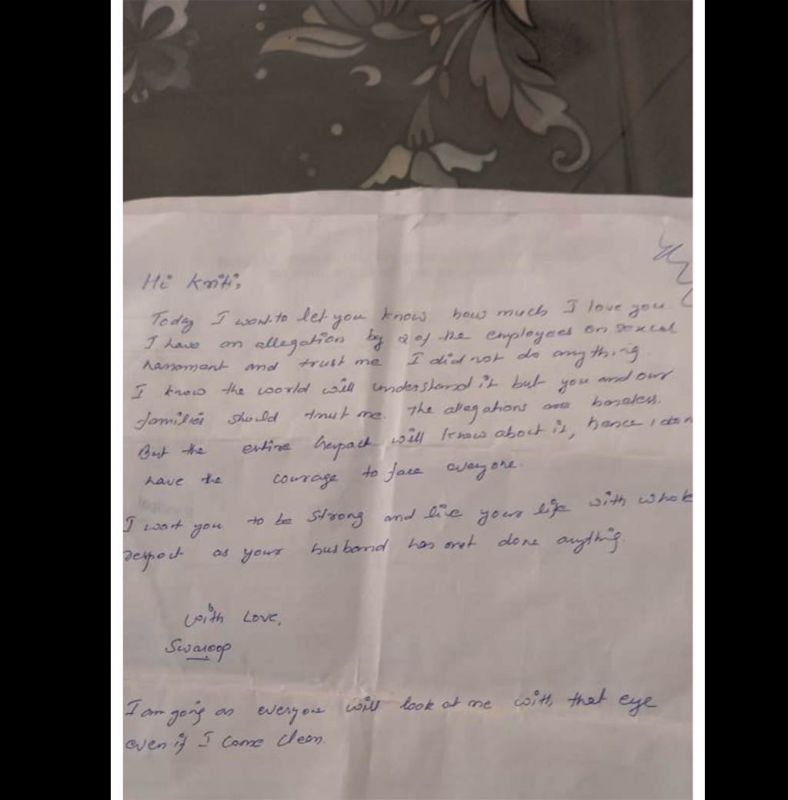 Hi Kriti,
Today I want to let you know how much I love you
I have an allegation by 2 of the employees on sexual
harrasment and trust me I did not do anything.
I know the world will understand it but you and our
families should trust me. The allegations are baseless.
But the entire Genpact will know about it, hence I don
have the courage to face everyone.
I want you to be strong and live your life with whole
respect as your husband has not done anything.
With Love,
Swaroop
I am going as everyone will look at me with that eye
even if I come clean.